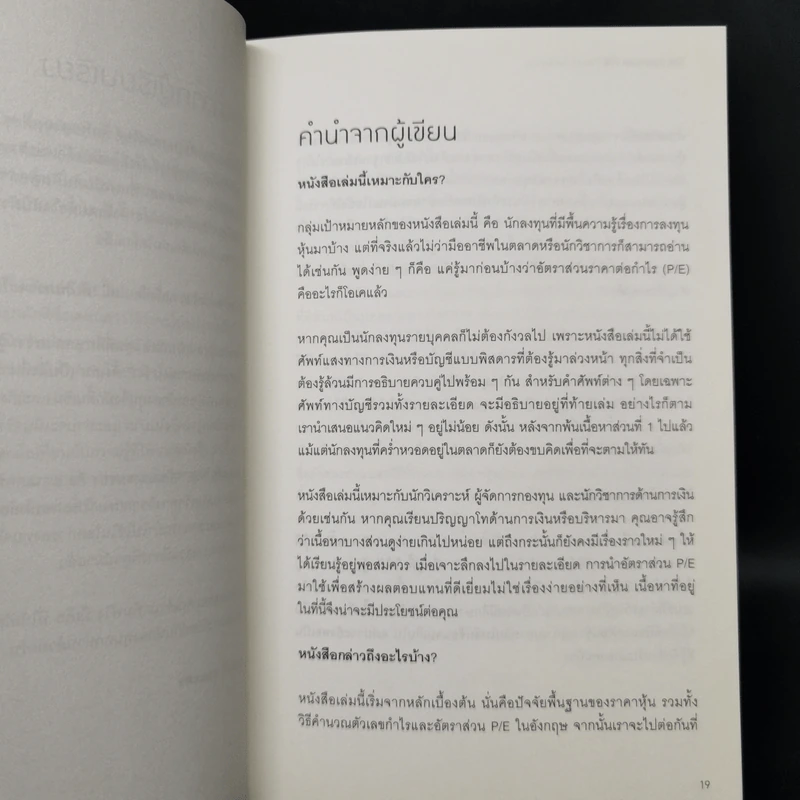 คำนำจากผู้เขียน
หนังสือเล่มนี้เหมาะกับใคร?
กลุ่มเป้าหมายหลักของหนังสือเล่มนี้ คือ นักลงทุนที่มีพื้นความรู้เรื่องการลงทุน
หุ้นมาบ้าง แต่ที่จริงแล้วไม่ว่ามืออาชีพในตลาดหรือนักวิชาการก็สามารถอ่าน
ได้เช่นกัน พูดง่าย ๆ ก็คือ แค่รู้มาก่อนบ้างว่าอัตราส่วนราคาต่อกำไร (P/E)
คืออะไรก็โอเคแล้ว
หากคุณเป็นนักลงทุนรายบุคคลก็ไม่ต้องกังวลไป เพราะหนังสือเล่มนี้ไม่ได้ใช้
ศัพท์แสงทางการเงินหรือบัญชีแบบพิสดารที่ต้องรู้มาล่วงหน้า ทุกสิ่งที่จำเป็น
ต้องรู้ล้วนมีการอธิบายควบคู่ไปพร้อม ๆ กัน สำหรับคำศัพท์ต่าง ๆ โดยเฉพาะ
ศัพท์ทางบัญชีรวมทั้งรายละเอียด จะมีอธิบายอยู่ที่ท้ายเล่ม อย่างไรก็ตาม
เรานำเสนอแนวคิดใหม่ ๆ อยู่ไม่น้อย ดังนั้น หลังจากพ้นเนื้อหาส่วนที่ 1 ไปแล้ว
แม้แต่นักลงทุนที่คร่ำหวอดอยู่ในตลาดก็ยังต้องขบคิดเพื่อที่จะตามให้ทัน
หนังสือเล่มนี้เหมาะกับนักวิเคราะห์ ผู้จัดการกองทุน และนักวิชาการด้านการเงิน
ด้วยเช่นกัน หากคุณเรียนปริญญาโทด้านการเงินหรือบริหารมา คุณอาจรู้สึก
ว่าเนื้อหาบางส่วนดูง่ายเกินไปหน่อย แต่ถึงกระนั้นก็ยังคงมีเรื่องราวใหม่ ๆ ให้
ได้เรียนรู้อยู่พอสมควร เมื่อเจาะลึกลงไปในรายละเอียด การนำอัตราส่วน P/E
มาใช้เพื่อสร้างผลตอบแทนที่ดีเยี่ยมไม่ใช่เรื่องง่ายอย่างที่เห็น เนื้อหาที่อยู่
ในที่นี้จึงน่าจะมีประโยชน์ต่อคุณ
หนังสือกล่าวถึงอะไรบ้าง?
หนังสือเล่มนี้เริ่มจากหลักเบื้องต้น นั่นคือปัจจัยพื้นฐานของราคาหุ้น รวมทั้ง
วิธีคำนวณตัวเลขกำไรและอัตราส่วน P/E ในอังกฤษ จากนั้นเราจะไปต่อกันที่
19